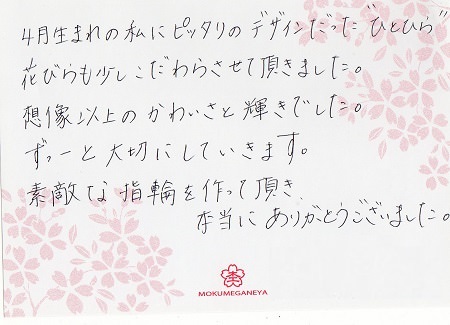 4月生まれの私にピッタリのデザインだった"ひとひら"
花びらも少しこだわらさせて頂きました。
想像以上のかわいさと輝きでした。
ずっーと大切にしていきます。
素敵な指輪を作って頂き
本当にありがとうございました。
MOKUMEGANEYA